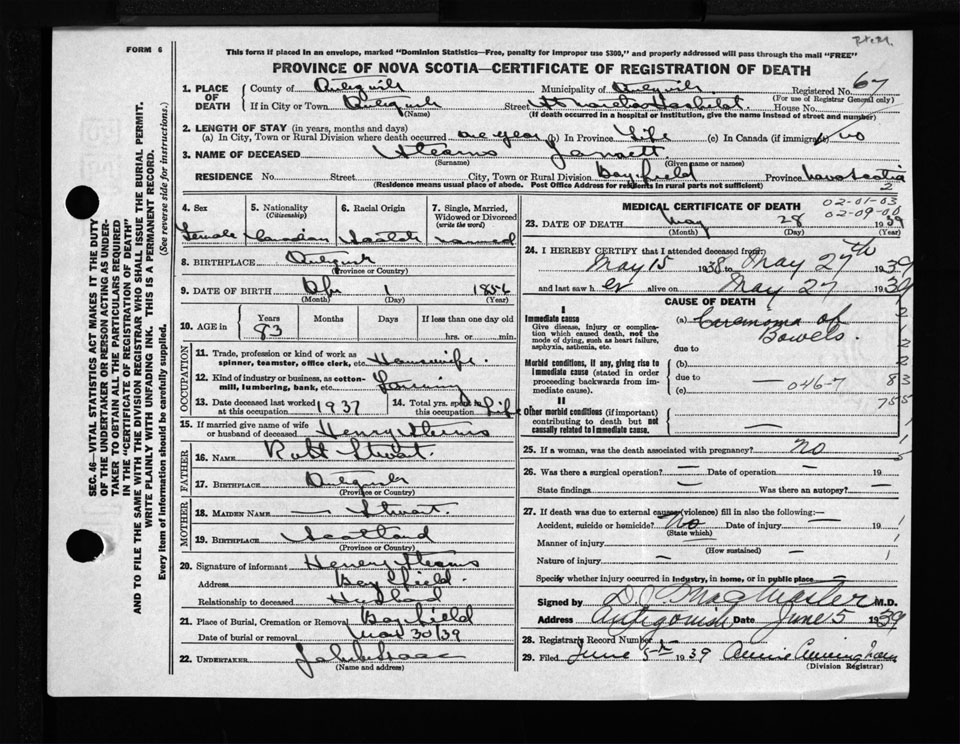 FORM 6
This form if placed in an envelope, marked "Dominion Statistics—Free, penalty for improper use $300," and properly addressed will pass through the mail "FREE"
PROVINCE OF NOVA SCOTIA—CERTIFICATE OF REGISTRATION OF DEATH
SEC. 46—VITAL STATISTICS ACT MAKES IT THE DUTY
OF THE UNDERTAKER OR PERSON ACTING AS UNDER-
TAKER TO OBTAIN ALL THE PARTICULARS REQUIRED
IN THE "CERTIFICATE OF REGISTRATION OF DEATH"
AND TO FILE THE SAME WITH THE DIVISION REGISTRAR WHO SHALL ISSUE THE BURIAL PERMIT.
WRITE PLAINLY WITH UNFADING INK. THIS IS A PERMANENT RECORD.
Every item of information should be carefully supplied. (See reverse side for instructions.)
1. PLACE OF DEATH
County of Antigonish Municipality of Antigonish Registered No. 67
(For use of Registrar General only)
If in City or Town Antigonish Street St Marthas Hospital House No.
(Name) (If death occurred in a hospital or institution, give the name instead of street and number)
2. LENGTH OF STAY (in years, months and days)
(a) In City, Town or Rural Division where death occurred one year (b) In Province Life (c) In Canada (if immigrant) no
3. NAME OF DECEASED Stearns Janett
(Surname) (Given name or names)
RESIDENCE No. Street City, Town or Rural Division Bayfield Province Nova Scotia
(Residence means usual place of abode. Post Office Address for residents in rural parts not sufficient) 2
4. Sex Female
5. Nationality (Citizenship) Canadian
6. Racial Origin Scotch
7. Single, Married, Widowed or Divorced (write the word) Married
8. BIRTHPLACE Antigonish
(Province or Country)
9. DATE OF BIRTH 1 1856
(Month) (Day) (Year)
10. AGE in Years 83 Months Days If less than one day old
hrs. or min.
OCCUPATION
11. Trade, profession or kind of work as spinner, teamster, office clerk, etc. Housewife
12. Kind of industry or business, as cotton-mill, lumbering, bank, etc. Farming
13. Date deceased last worked at this occupation 1937
14. Total yrs. spent in this occupation Life
15. If married give name of wife or husband of deceased Henry Stearns
FATHER
16. NAME Robt Stewart.
17. BIRTHPLACE Antigonish
(Province or Country)
MOTHER
18. MAIDEN NAME — Stewart
19. BIRTHPLACE Scotland
(Province or Country)
20. Signature of informant Henry Stearns
Address Bayfield.
Relationship to deceased Husband
21. Place of Burial, Cremation or Removal Bayfield
Date of burial or removal May 30/39
22. UNDERTAKER
(Name and address)
MEDICAL CERTIFICATE OF DEATH
02-01-03
02-09-00
23. DATE OF DEATH May 28 1939
(Month) (Day) (Year)
24. I HEREBY CERTIFY that I attended deceased from:
May 15 1938 to May 27th 1939
and last saw her alive on May 27 1939
CAUSE OF DEATH
I
Immediate cause
Give disease, injury or complication which caused death, not the mode of dying, such as heart failure, asphyxia, asthenia, etc.
(a) Carcinoma of Bowels.
due to
Morbid conditions, if any, giving rise to immediate cause (stated in order proceeding backwards from immediate cause).
(b)
due to — 046-7 83
(c)
755
II
Other morbid conditions (if important) contributing to death but not causally related to immediate cause. —
25. If a woman, was the death associated with pregnancy? no
26. Was there a surgical operation? — Date of operation — 19
State findings — Was there an autopsy? —
27. If death due to external causes (violence) fill in also the following:—
Accident, suicide or homicide? No Date of injury — 19
(State which)
Manner of injury —
(How sustained)
Nature of injury —
Specify whether injury occurred in industry, in home, or in public place —
Signed by M.D.
Antigonish Date June 5 1939
28. Registrar's Record Number
29. Filed June 5th 1939 Annie Cunningham
(Division Registrar)